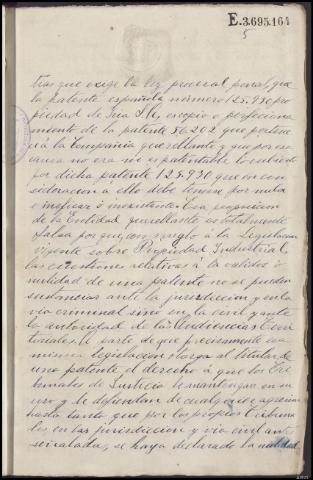 E.3695.164
5
tias que exige la ley procesal penal, que
la patente española número 125.930 pro
piedad de Iria S.A, es copia o perfeciona
miento de la patente 86.202 que pertene
ce á la Compañia querellante y que por esa
causa no era ni es patentable lo cubierto
por dicha patente 125.930 que en con
sideracion á ello debe tenerse por nula
e ineficaz ó inexistente. Esa proposicion
de la Entidad querellante es totalmente
falsa por que, con arreglo á la Legislacion
vigente sobre Propiedad Industrial,
las cuestiones relativas á la validez ó
nulidad de una patente no se pueden
sustanciar ante la jurisdiccion y en la
via criminal sino en la civil y ante
la autoridad de las Audiencias Terri
toriales. A parte de que precisamente esa
misma legislacion otorga al titular de
una patente el derecho á que los Tri
bunales de Justicia le mantengan en su
uso y le defiendan de cualquier agresion
hasta tanto que por los propios Tribuna
les en la jurisdiccion y via civil antes
señalada, se haya declarado la nulidad